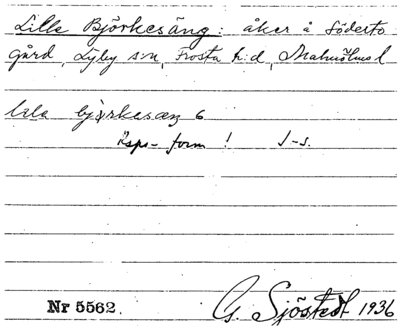 Lilla Björkesäng: åker å Söderto
gård, Lyby s:n, Frosta h:d, Malmöhus l
lila bjırkesæŋ 6
Raps- form! J-s.
Nr 5562. G. Sjöstedt 1936